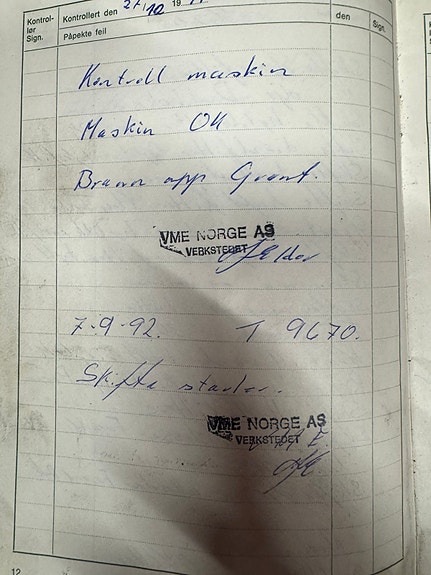 Kontrol-
lør
Sign.
Kontrollert den 27/10 19
den
Sign.
Påpekte feil
Kontroll maskin
Maskin OK
Brann opp Grønt.
VME NORGE AS
VERKSTEDET
7-9-92. T 9670.
Skifta starter.
VME NORGE AS
VERKSTEDET
12